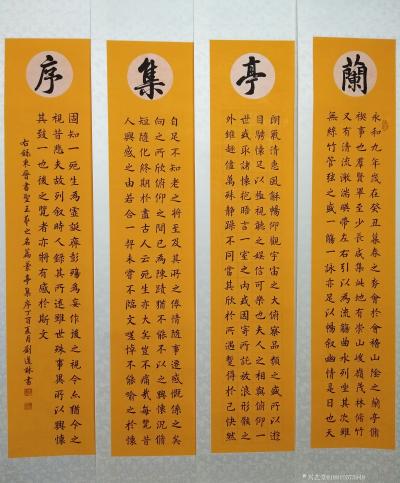 蘭
永和九年歲在癸丑暮春之初會於會稽山陰之蘭亭脩
禊事也群賢畢至少長咸集此地有崇山峻嶺茂林脩竹
又有清流激湍暎帶左右引以為流觴曲水列坐其次雖
無絲竹管弦之盛一觴一詠亦足以暢敘幽情是日也天
亭
朗氣清惠風龢暢仰觀宇宙之大俯察品類之盛所以遊
目騁懷足以極視聽之娛信可樂也夫人之相與俯仰一
世或取諸懷抱晤言一室之內或因寄所託放浪形骸之
外雖趣萬殊靜躁不同當其欣於所遇暫得於己快然
集
自足不知老之將至及其所之倦情隨事遷感慨係之矣
向之所欣俯仰之間已為陳跡猶不能不以之興懷況脩
短隨化終期於盡古人云死生亦大矣豈不痛哉每覽昔
人興感之由若合一契未嘗不臨文嗟悼不能喻之於懷
序
固知一死生為虛誕齊彭殤為妄作後之視今亦猶今之
視昔悲夫故列敘時人錄其所述雖世殊事異所以興懷
其致一也後之覽者亦將有感於斯文
右錄東晉書聖王羲之名篇蘭亭集序丁酉夏月劉道林書